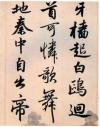 牙檣起白鷗迴
首可憐歌舞
地秦中自古帝